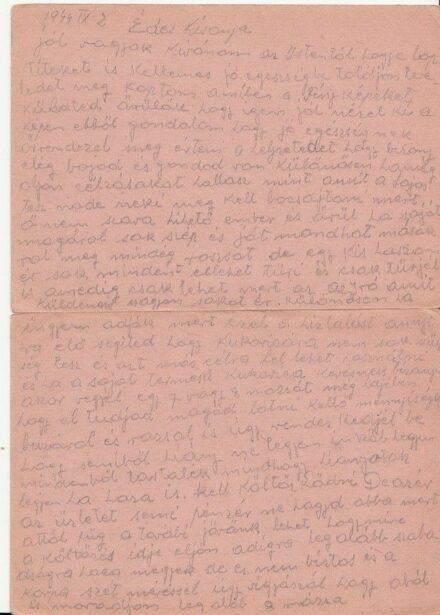 1944 IX 2 Édes Kisanya
jól vagyok kivánom az Istentől hogy a lap
titeket is kellemes jó egészségbe találjon leve
ledet meg kaptam amiben a fényképeket
küldted örülök hogy igen jól néset ki a
képen ebből gondolom hogy jó egészségnek
örvendezel meg értem a helyzetedet hogy bizony
elég bajod és gondod van különösen ha még
olyan célzásokat hallasz mint amit a
tesz na de neki meg kell bocsájtani mert
ő nem szava hihető ember és örül ha saját
magáról sok szép és jót mondhat mások
ról meg mindég rosszat de egy kis haszon
ér sok mindent ellehet tűrni és csak tűrjél
is amedig csak lehet mert az ami
küldenek nagyon sokat ér különösen ha
ingyen adják mert ezel a lisztalást annyi
ra elő segited hogy kukoricára nem sok szük
ség lesz és azt más célra fel lehet használni
és ha a saját termésű kukorica kevesnek bizonyul
akor vegyél egy 7 vagy 8 mázsát meg idejében
hogy el tudjad magad látni kellő mennyiségű
búzával és rozsal is úgy rendes kedjél be
hogy semiből hiany ne legyen inkább legyen
mindenből tartalek minthogy hianyotok
legyen ha lassa is kell költölködni
az üzletet semi pénzér ne hagyd abba mert
attól füg a további jövőnk lehet hogy mire
a költözés idje eljön adigra legalább szaba
dságra haza megyek de ez nem biztos és a
korpa meréssel úgy igyjázzál hogy aból
is maradjon leg alább 2 mázsa